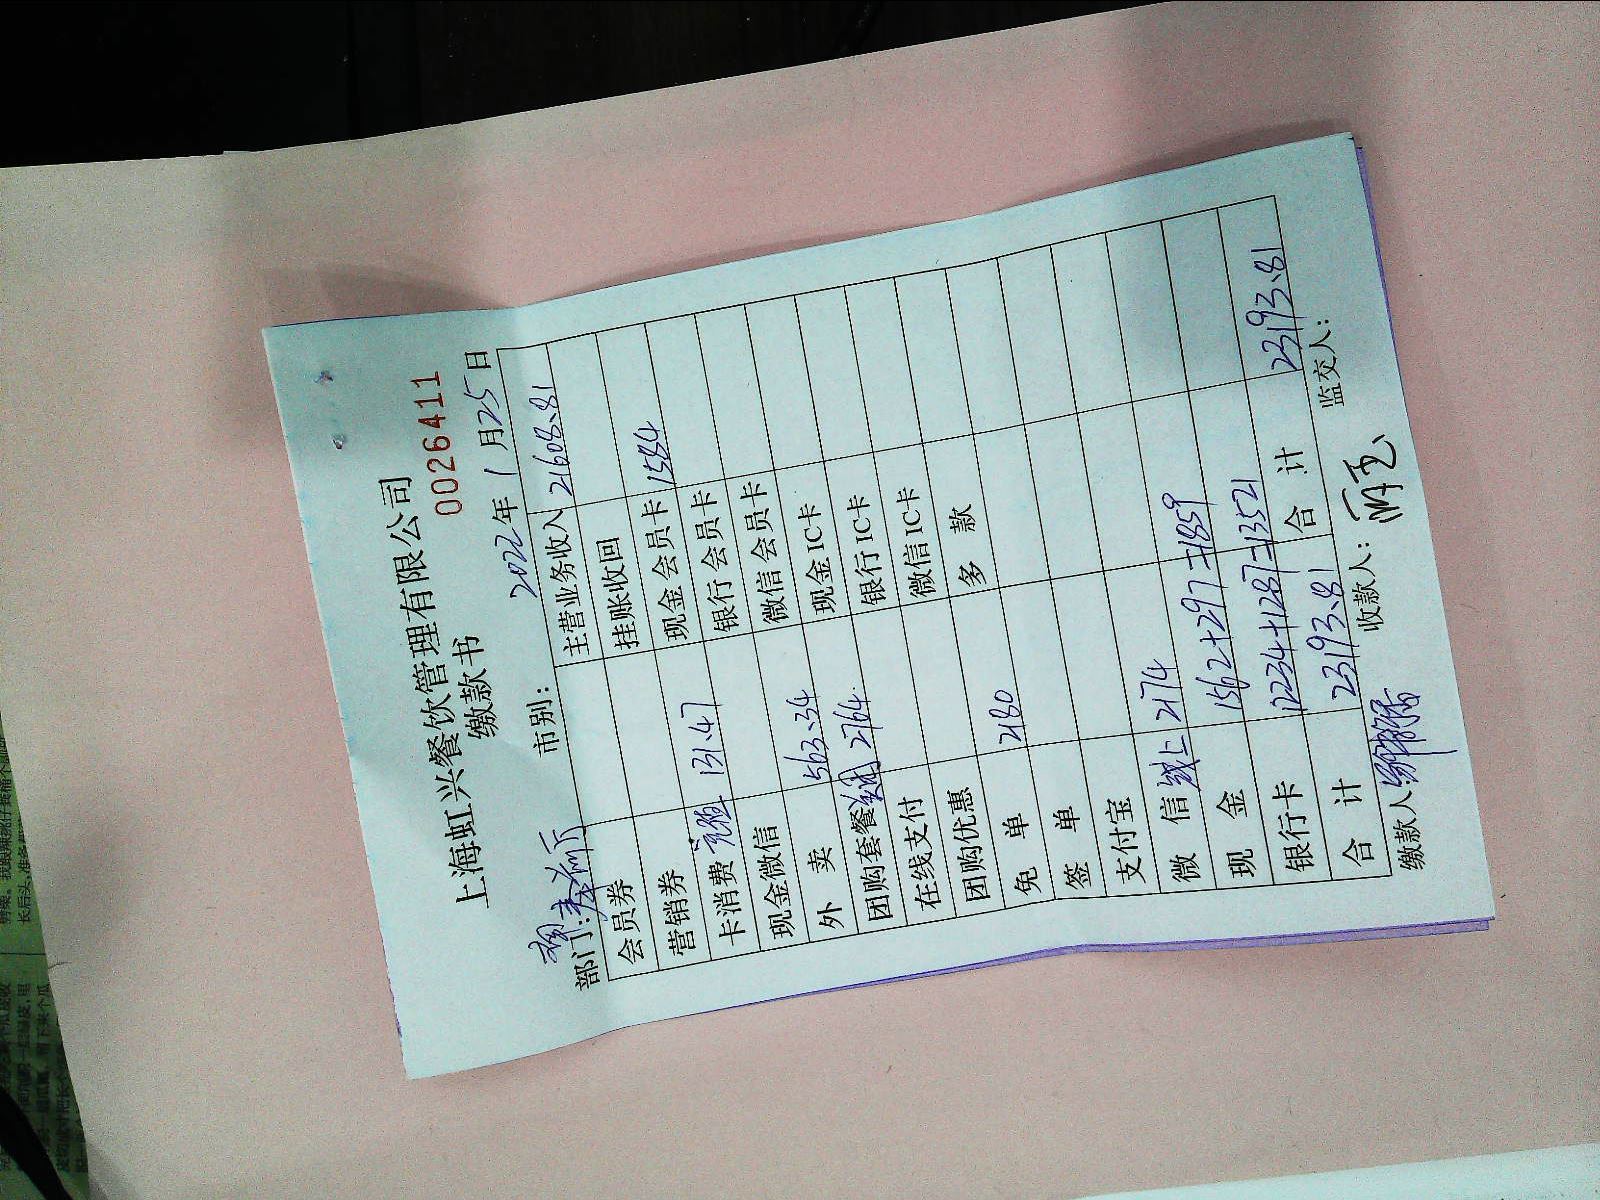 上海虹兴餐饮管理有限公司
缴款书 0026411
2022年1月25日
部门: 市别:
会员券 主营业务收入 21608.81
营销券 挂账收回
卡消费 131.47 现金会员卡 1584
现金微信 银行会员卡
外 卖 563.34 微信会员卡
团购套餐 美团 2764 现金IC卡
在线支付 银行IC卡
团购优惠 微信IC卡
免 单 2180 多 款
签 单
支付宝
微 信 线上 2174
现 金 1562+297=1859
银行卡 12234+1287=13521
合 计 23193.81 合 计 23193.81
缴款人: 收款人: 监交人: